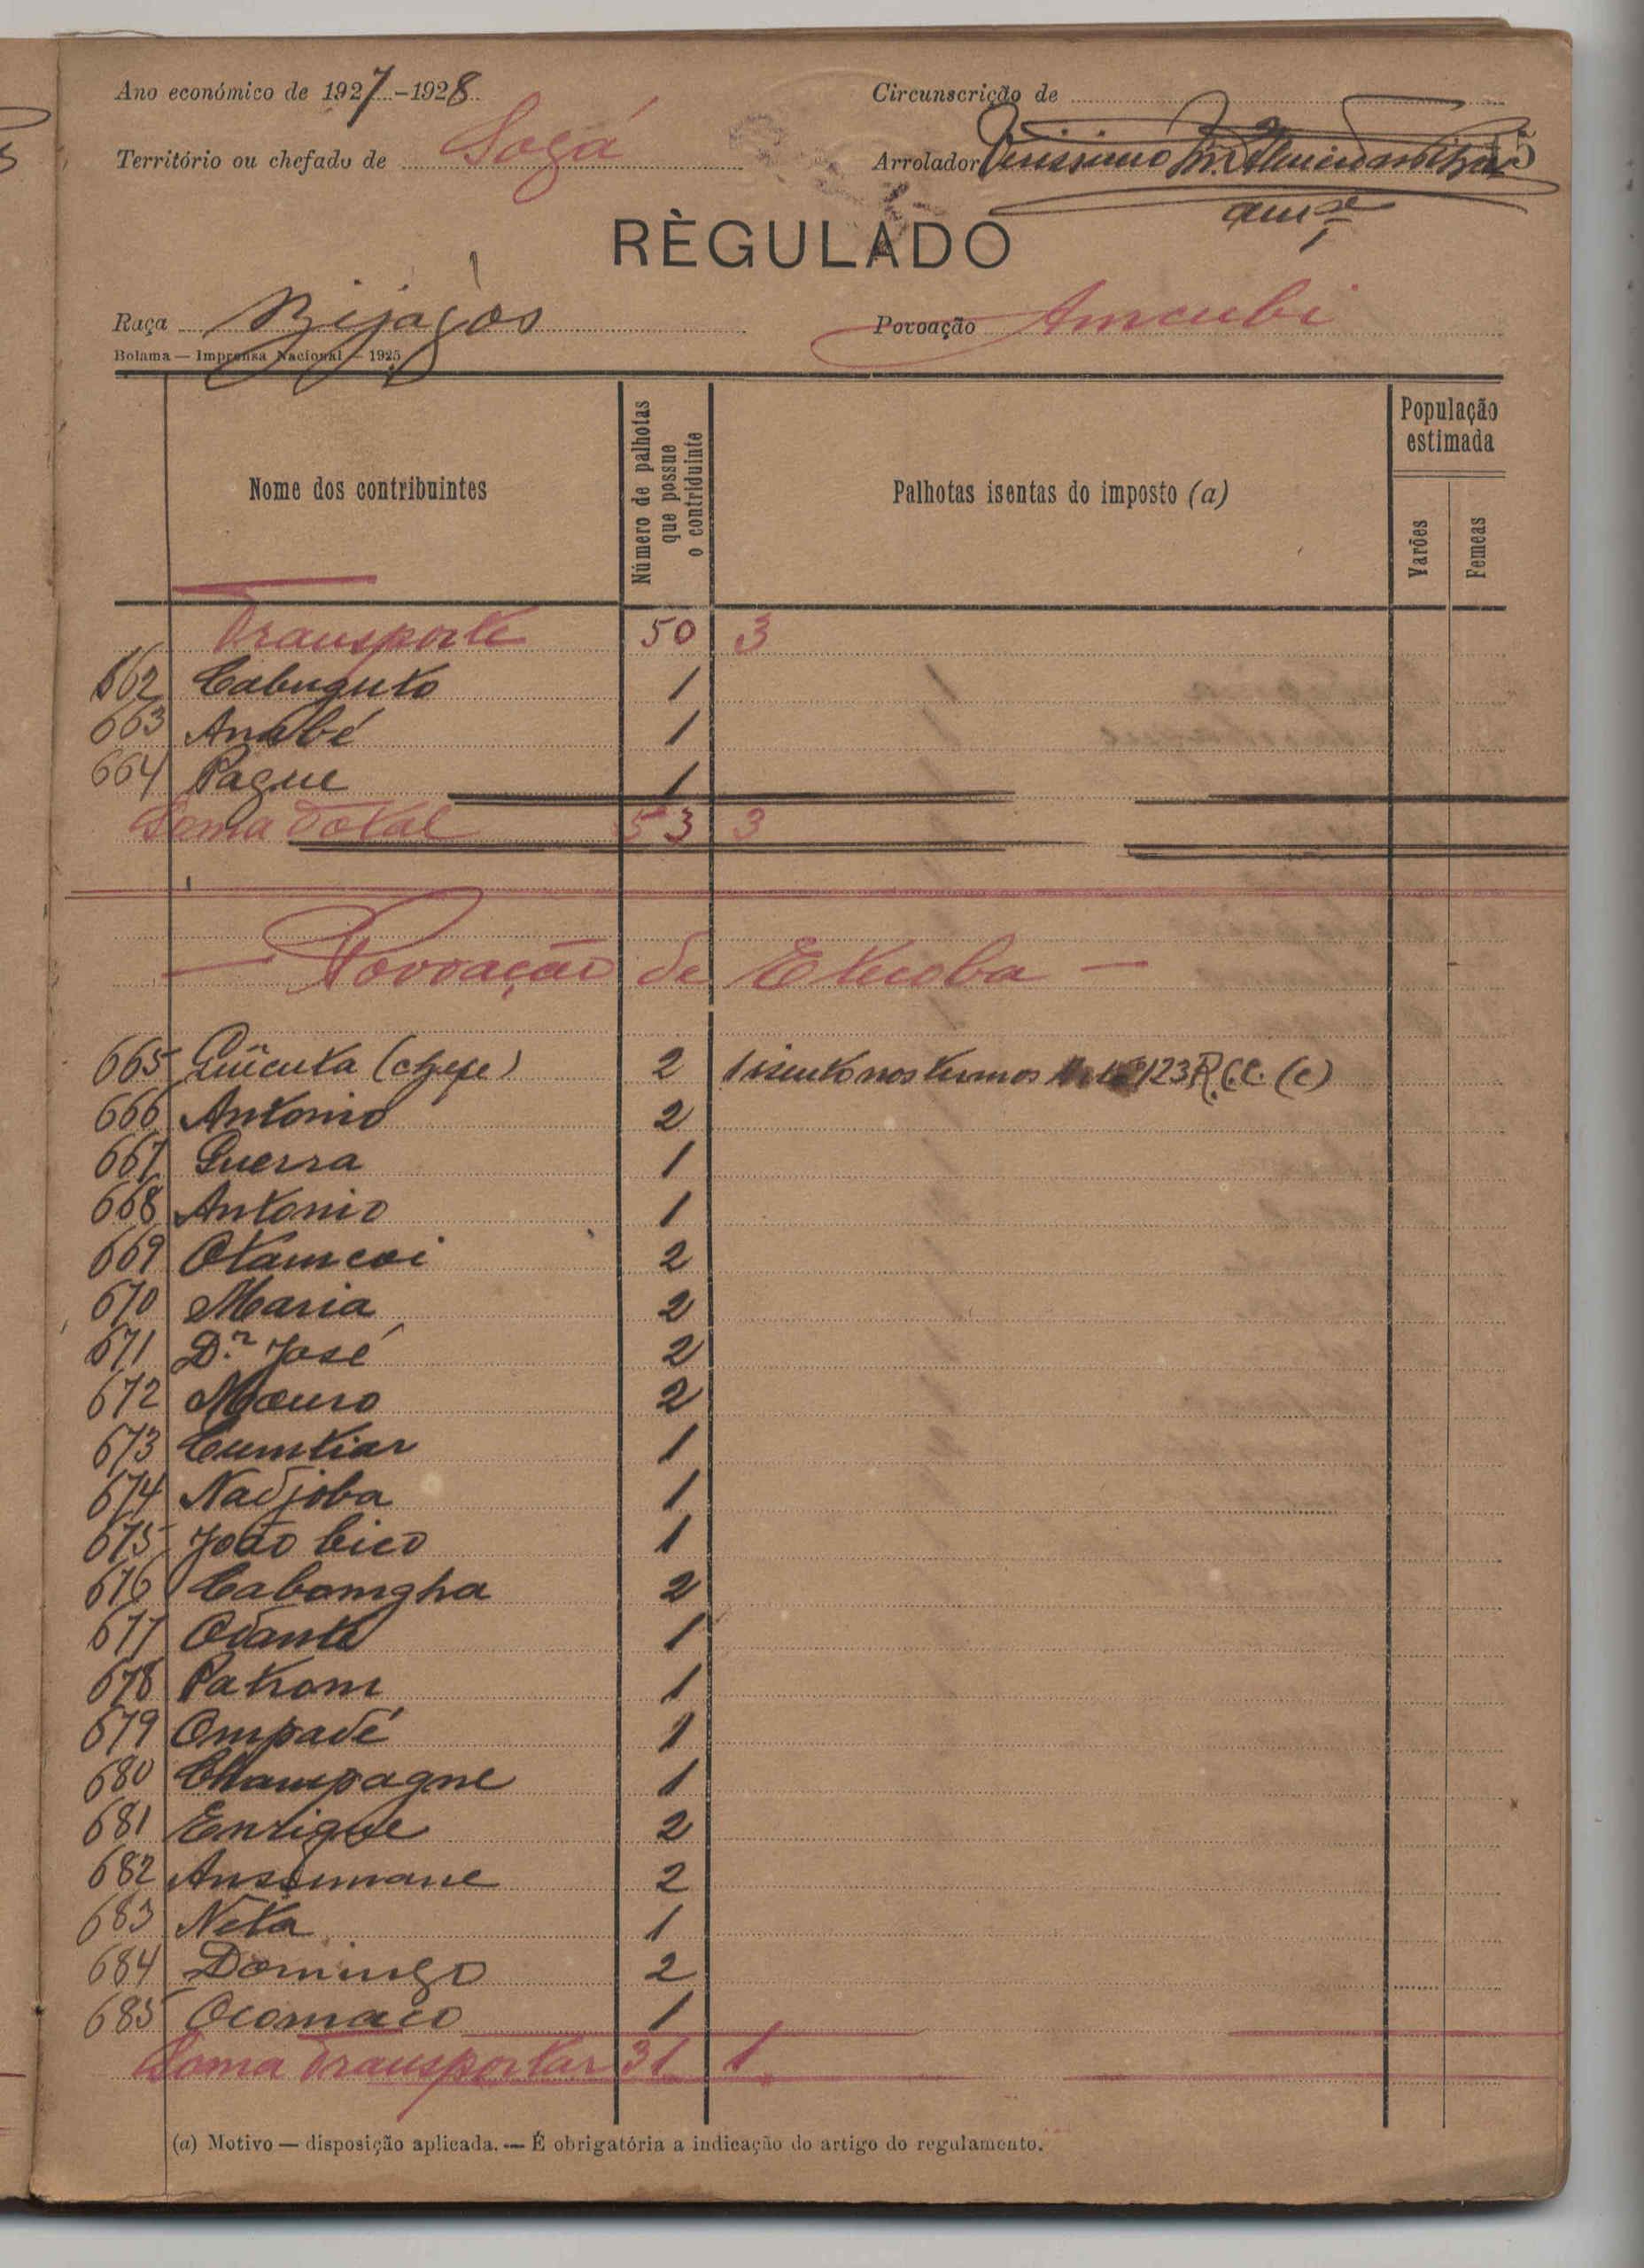 Ano económico de 1927-1928 Circunscrição de
Território ou chefado de Sogá Arrolador Verissimo
RÈGULADO
Raça Bijagós Povoação Ameubi
Bolama — Imprensa Nacional — 1925
Nome dos contribuintes Número de palhotas que possue o contriduinte Palhotas isentas do imposto (a) População estimada Varões Femeas
Transporte 50 3
662 Cabuguto 1
663 Anabé 1
664 Pague 1
Soma Total 53 3
— Povoação de Etucoba —
665 (chefe) 2 1 isento nos termos 123 R.C.C. (c)
666 Antonio 2
667 Guerra 1
668 Antonio 1
669 Otamcoi 2
670 Maria 2
671 D.r José 2
672 Mauro 2
673 Cumtiar 1
674 Nadjoba 1
675 João bico 1
676 Cabomgha 2
677 Odante 1
678 Patrom 1
679 Ompadé 1
680 Champagne 1
681 Enrique 2
682 Ansumane 2
683 Neta 1
684 Domingo 2
685 Ocomaco 1
Soma Transportar 31 1
(a) Motivo — disposição aplicada. — É obrigatória a indicação do artigo do regulamento.